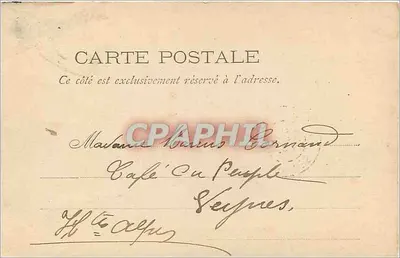 CARTE POSTALE
Ce côté est exclusivement réservé à l'adresse.
Madame Marius Fernand
CPAPHIL
Café du Peuple
Veynes
Htes Alpes